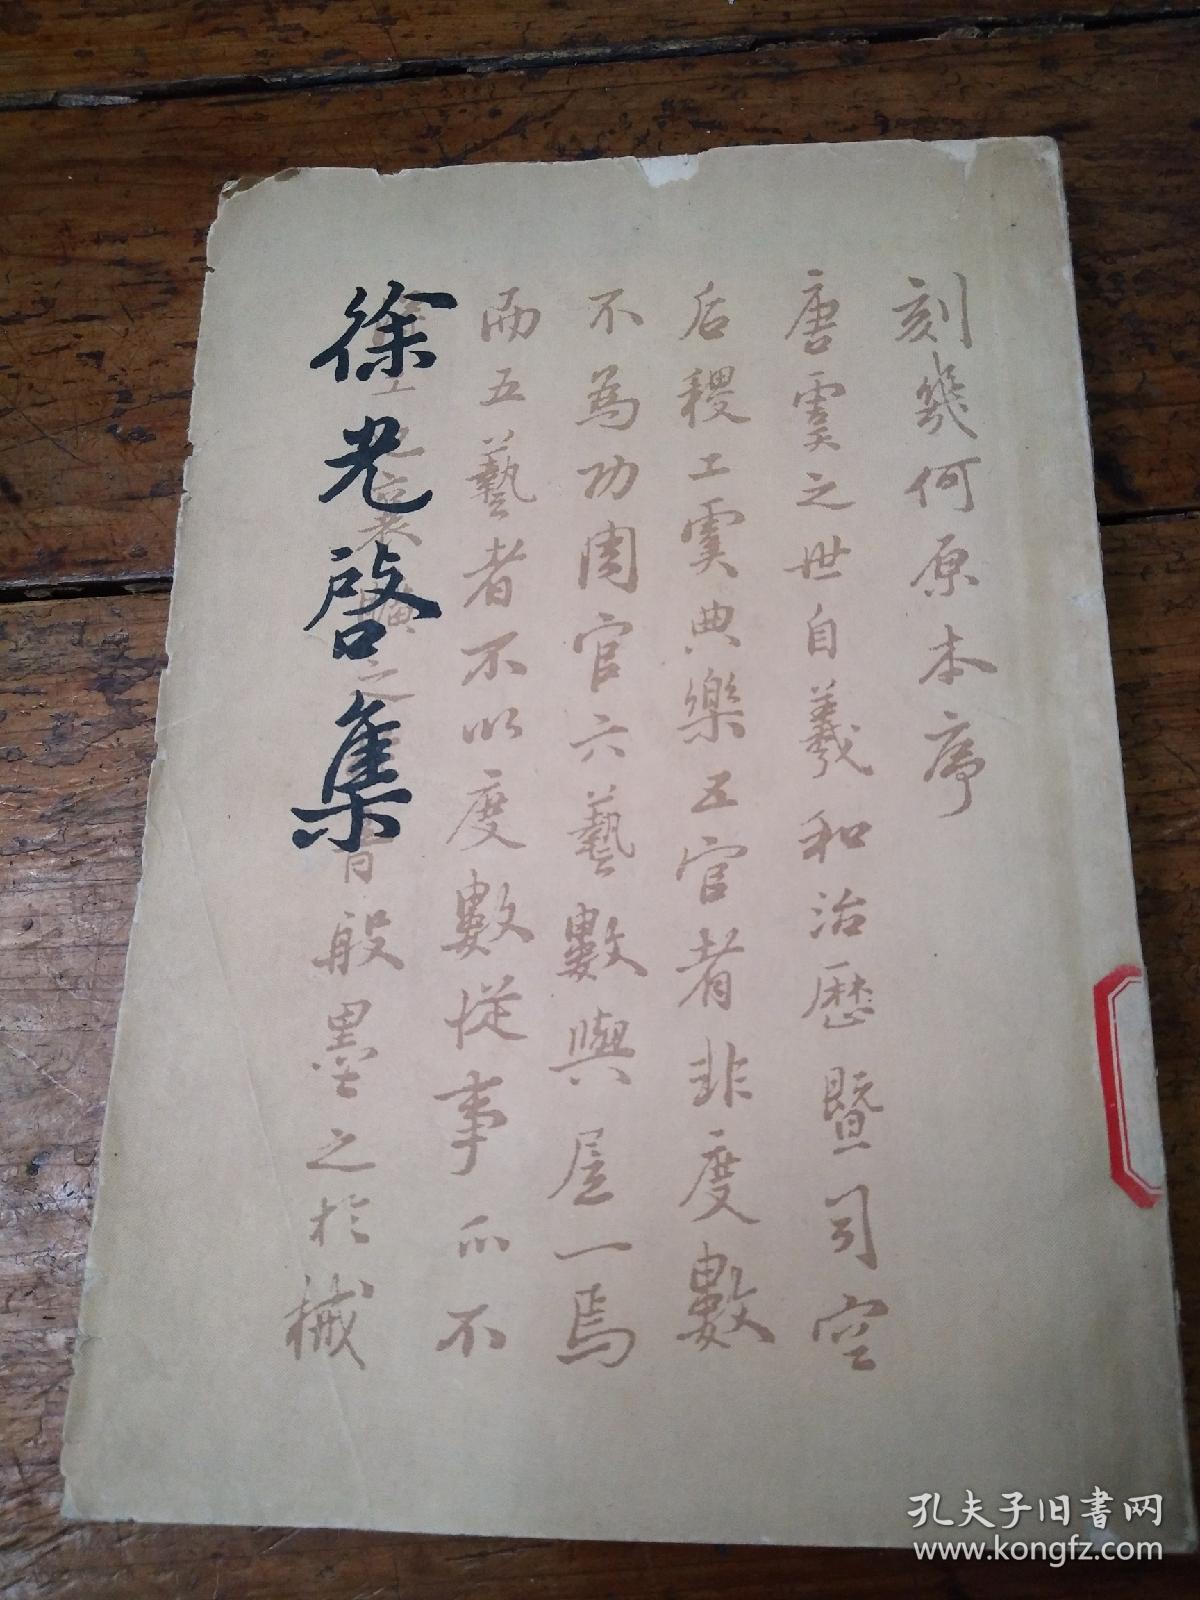 刻幾何原本序
唐虞之世自羲和治歷暨司空
后稷工虞典樂五官者非度數
不為功周官六藝數與居一焉
而五藝者不以度數從事亦不
般墨之於械
徐光啓集
孔夫子旧书网
www.kongfz.com